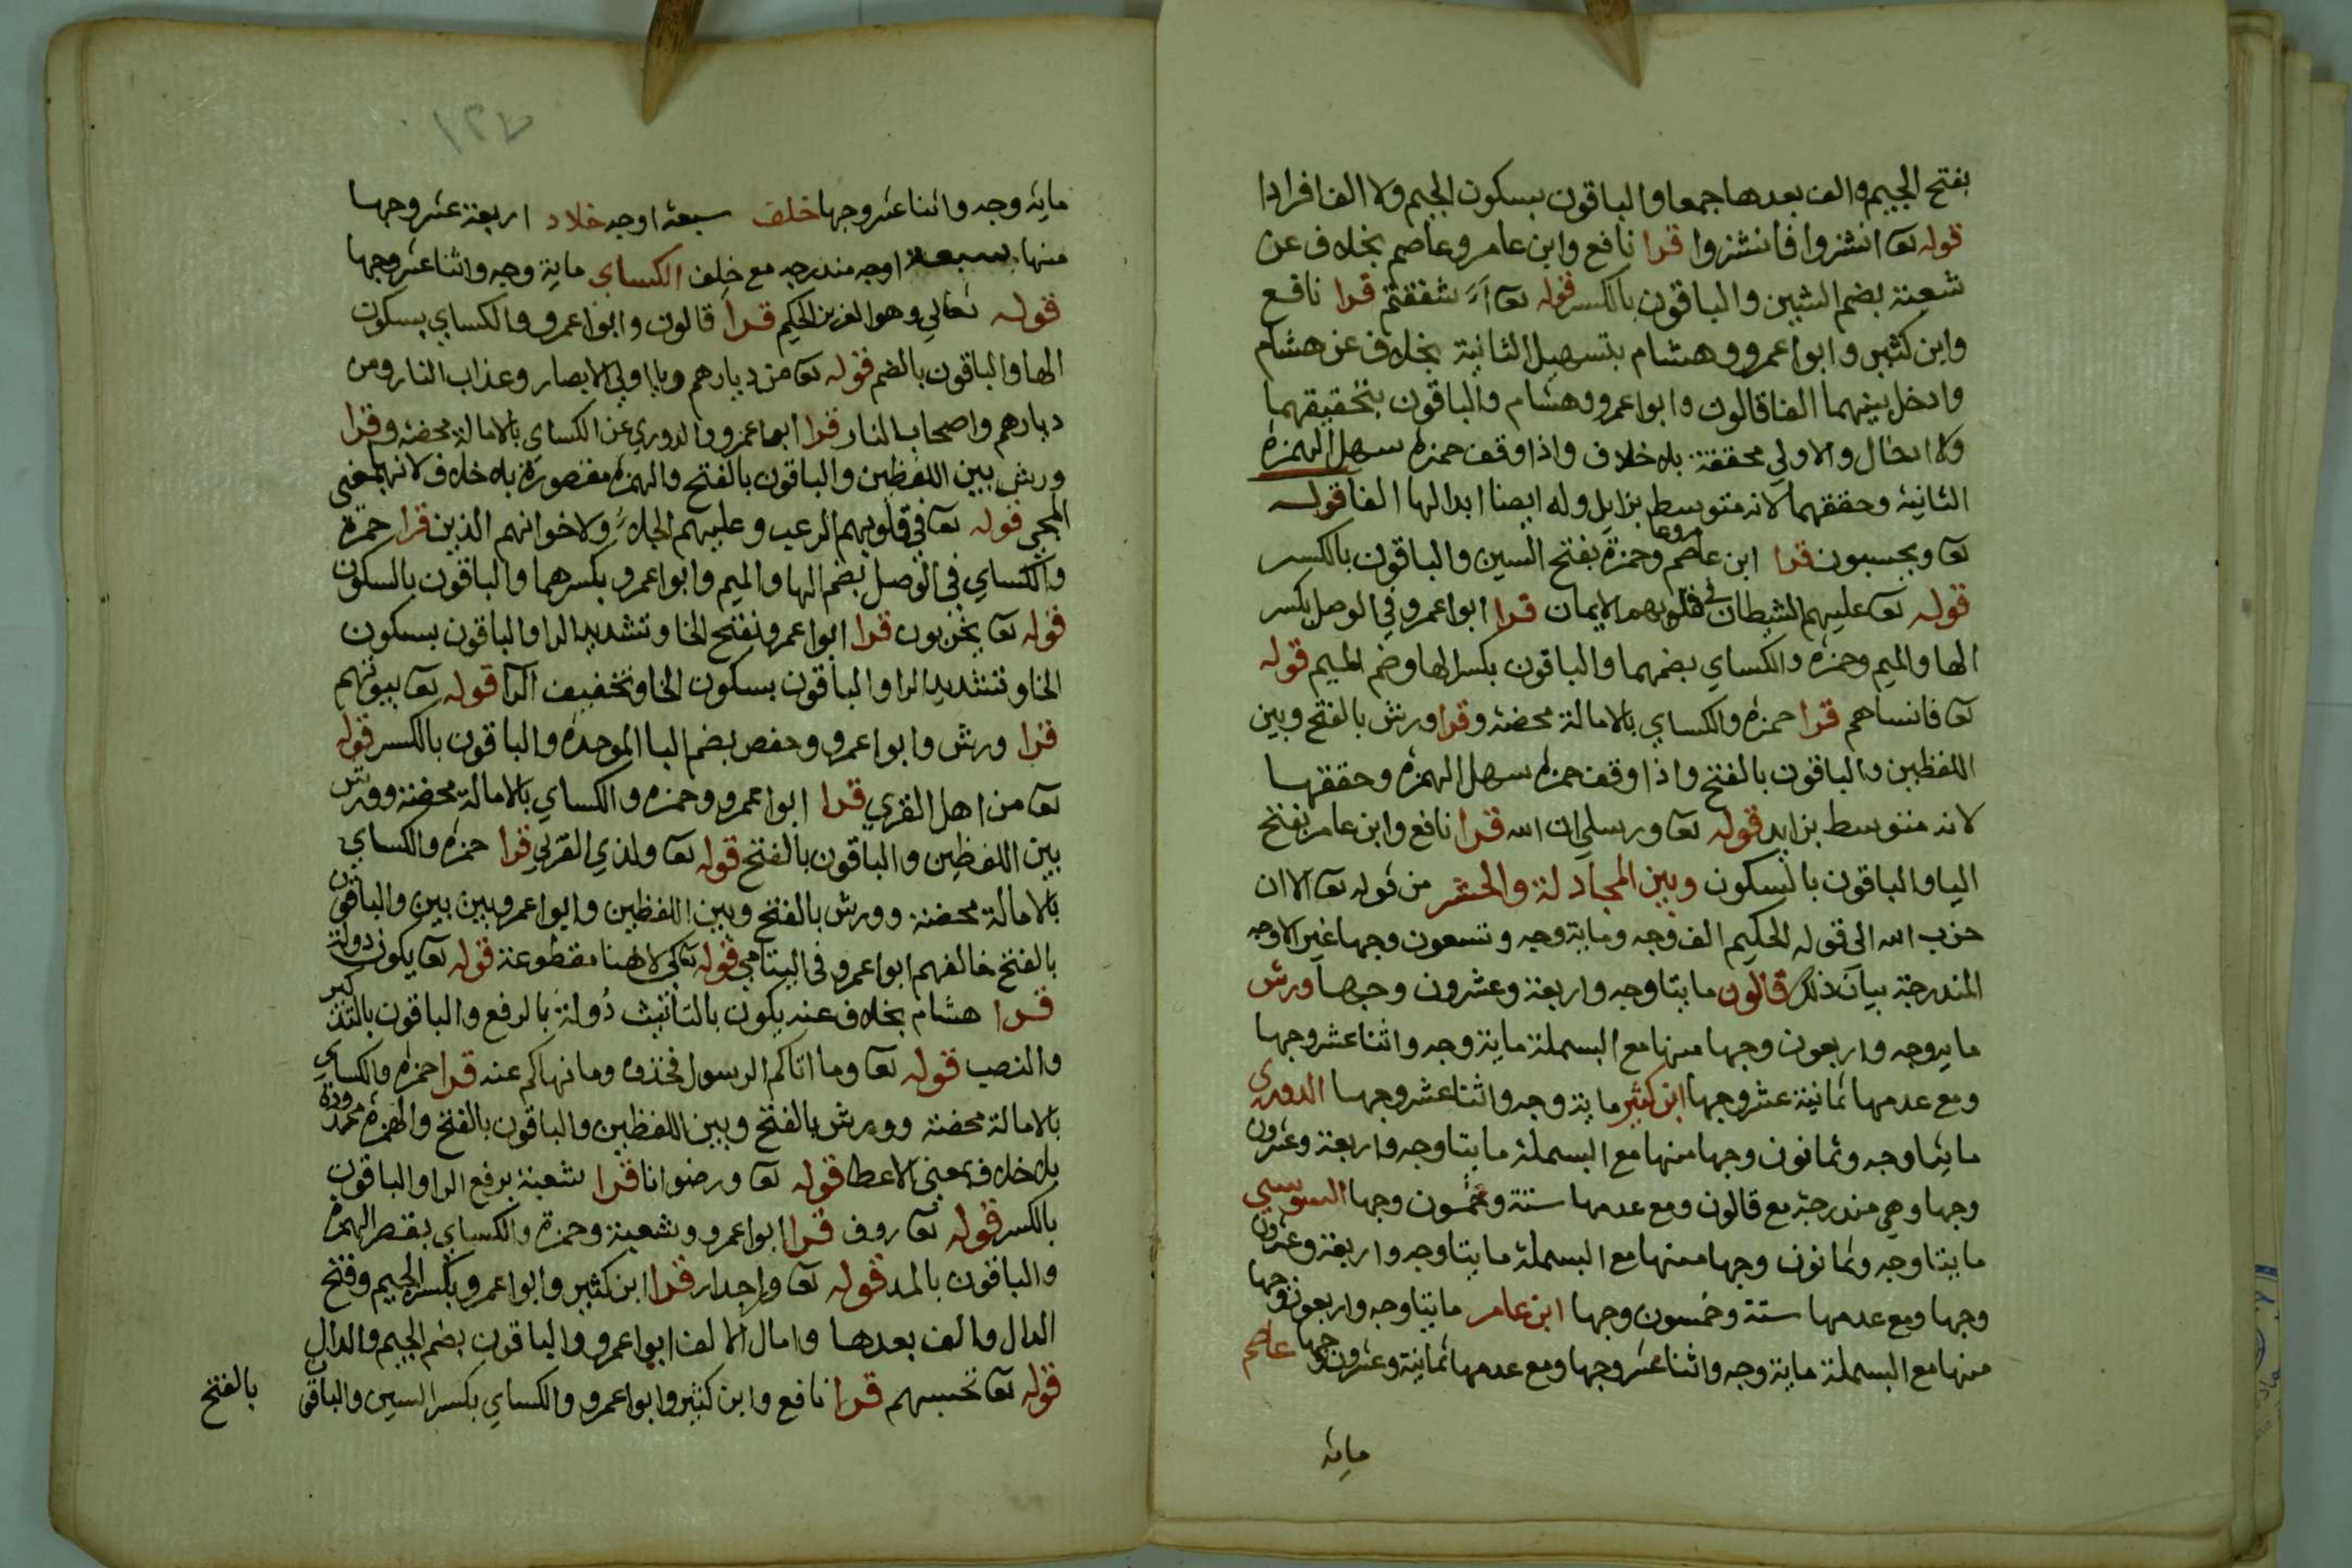 بفتح الجيم والف بعدها جمعا والباقون بسكون الجيم ولا الف افرادا
قوله تعا انشزوا فانشزوا قرا نافع وابن عامر وعاصم بخلاف عن
شعبة بضم الشين والباقون بالكسر قوله تعا ءاشفقتم قرا نافع
وابن كثير وابوا عمرو وهشام بتسهيل الثانية بخلاف عن هشام
وادخل بينهما الفا قالون وابوا عمرو وهشام والباقون بتحقيقهما
ولا ادخال والاولي محققة بلا خلاف واذا وقف حمزه سهل الهمزه
الثانية وحققهما لانه متوسط بزايل وله ايضا ابدالها الفا قوله
تعا ويحسبون قرا ابن عامر وعاصم وحمزة بفتح السين والباقون بالكسر
قوله تعا عليهم الشيطان في قلوبهم الايمان قرا ابوا عمرو في الوصل بكسر
الها والميم وحمزه والكساي بضمهما والباقون بكسر الها وضم الميم قوله
تعا فانساهم قرا حمزه والكساي بالامالة محضة وقرا ورش بالفتح وبين
اللفظين والباقون بالفتح واذا وقف حمزه سهل الهمزه وحققها
لانه متوسط بزايد قوله تعا ورسلي ان الله قرا نافع وابن عامر بفتح
اليا والباقون بالسكون وبين المجادلة والحشر من قوله تعا الا ان
حزب الله الى قوله الحكيم الف وجه وماية وجه وتسعون وجها غير الاوجه
المندرجة بيان ذلك قالون مايتا وجه واربعة وعشرون وجها ورش
ماية وجه واربعون وجها منها مع البسملة ماية وجه واثنا عشر وجها
ومع عدمها ثمانية عشر وجها ابن كثير ماية وجه واثنا عشر وجها الدوري
مايتا وجه وثمانون وجها منها مع البسملة مايتا وجه واربعة وعشرون
وجها وهي مندرجة مع قالون ومع عدمها ستة وخمسون وجها السوسي
مايتا وجه وثمانون وجها منها مع البسملة مايتا وجه واربعة وعشرون
وجها ومع عدمها ستة وخمسون وجها ابن عامر مايتا وجه واربعون وجها
منها مع البسملة ماية وجه واثنا عشر وجها ومع عدمها ثمانية وعشرون وجها عاصم
ماية
١٢٧
ماية وجه واثنا عشر وجها خلف سبعة اوجه خلاد اربعة عشر وجها
منها سبعة اوجه مندرجه مع خلف الكساي ماية وجه واثنا عشر وجها
قوله تعالي وهو العزيز الحكيم قرا قالون وابوا عمرو والكساي بسكون
الها والباقون بالضم قوله تعا من ديارهم ويا اولي الابصار وعذاب النار ومن
ديارهم واصحاب النار قرا ابوا عمرو والدوري عن الكساي بالامالة محضة وقرا
ورش بين اللفظين والباقون بالفتح والهمزه مقصورة بلا خلاف لانه بمعني
المجي قوله تعا في قلوبهم الرعب وعليهم الجلاء ولاخوانهم الذين قرا حمزة
والكساي في الوصل بضم الها والميم وابوا عمرو بكسرهما والباقون بالسكون
قوله تعا يخربون قرا ابوا عمرو بفتح الخا وتشديد الرا والباقون بسكون
الخا وتشديد الرا والباقون بسكون الخا وتخفيف الرا قوله تعا بيوتهم
قرا ورش وابوا عمرو وحفص بضم البا الموحده والباقون بالكسر قوله
تعا من اهل القري قرا ابوا عمرو وحمزه والكساي بالامالة محضة وورش
بين اللفظين والباقون بالفتح قوله تعا ولذي القربي قرا حمزه والكساي
بالامالة محضة وورش بالفتح وبين اللفظين وابوا عمرو بين بين والباقون
بالفتح خالفهم ابوا عمرو في اليتامي قوله تعا كي لا هنا مقطوعة قوله تعا يكون دولة
قرا هشام بخلاف عنه يكون بالتانيث دُولة بالرفع والباقون بالتذكير
والنصب قوله تعا وما اتاكم الرسول فخذوه وما نهاكم عنه قرا حمزه والكساي
بالامالة محضة وورش بالفتح وبين اللفظين والباقون بالفتح والهمزه ممدودة
بلا خلاف بمعنى الاعطا قوله تعا ورضوانا قرا شعبة برفع الرا والباقون
بالكسر قوله تعا روف قرا ابوا عمرو وشعبة وحمزة والكساي بقصر الهمزه
والباقون بالمد قوله تعا وراجدار قرا ابن كثير وابوا عمرو بكسر الجيم وفتح
الدال والف بعدها وامال الالف ابوا عمرو والباقون بضم الجيم والدال
قوله تعا تحسبهم قرا نافع وابن كثير وابوا عمرو والكساي بكسر السين والباقون
بالفتح